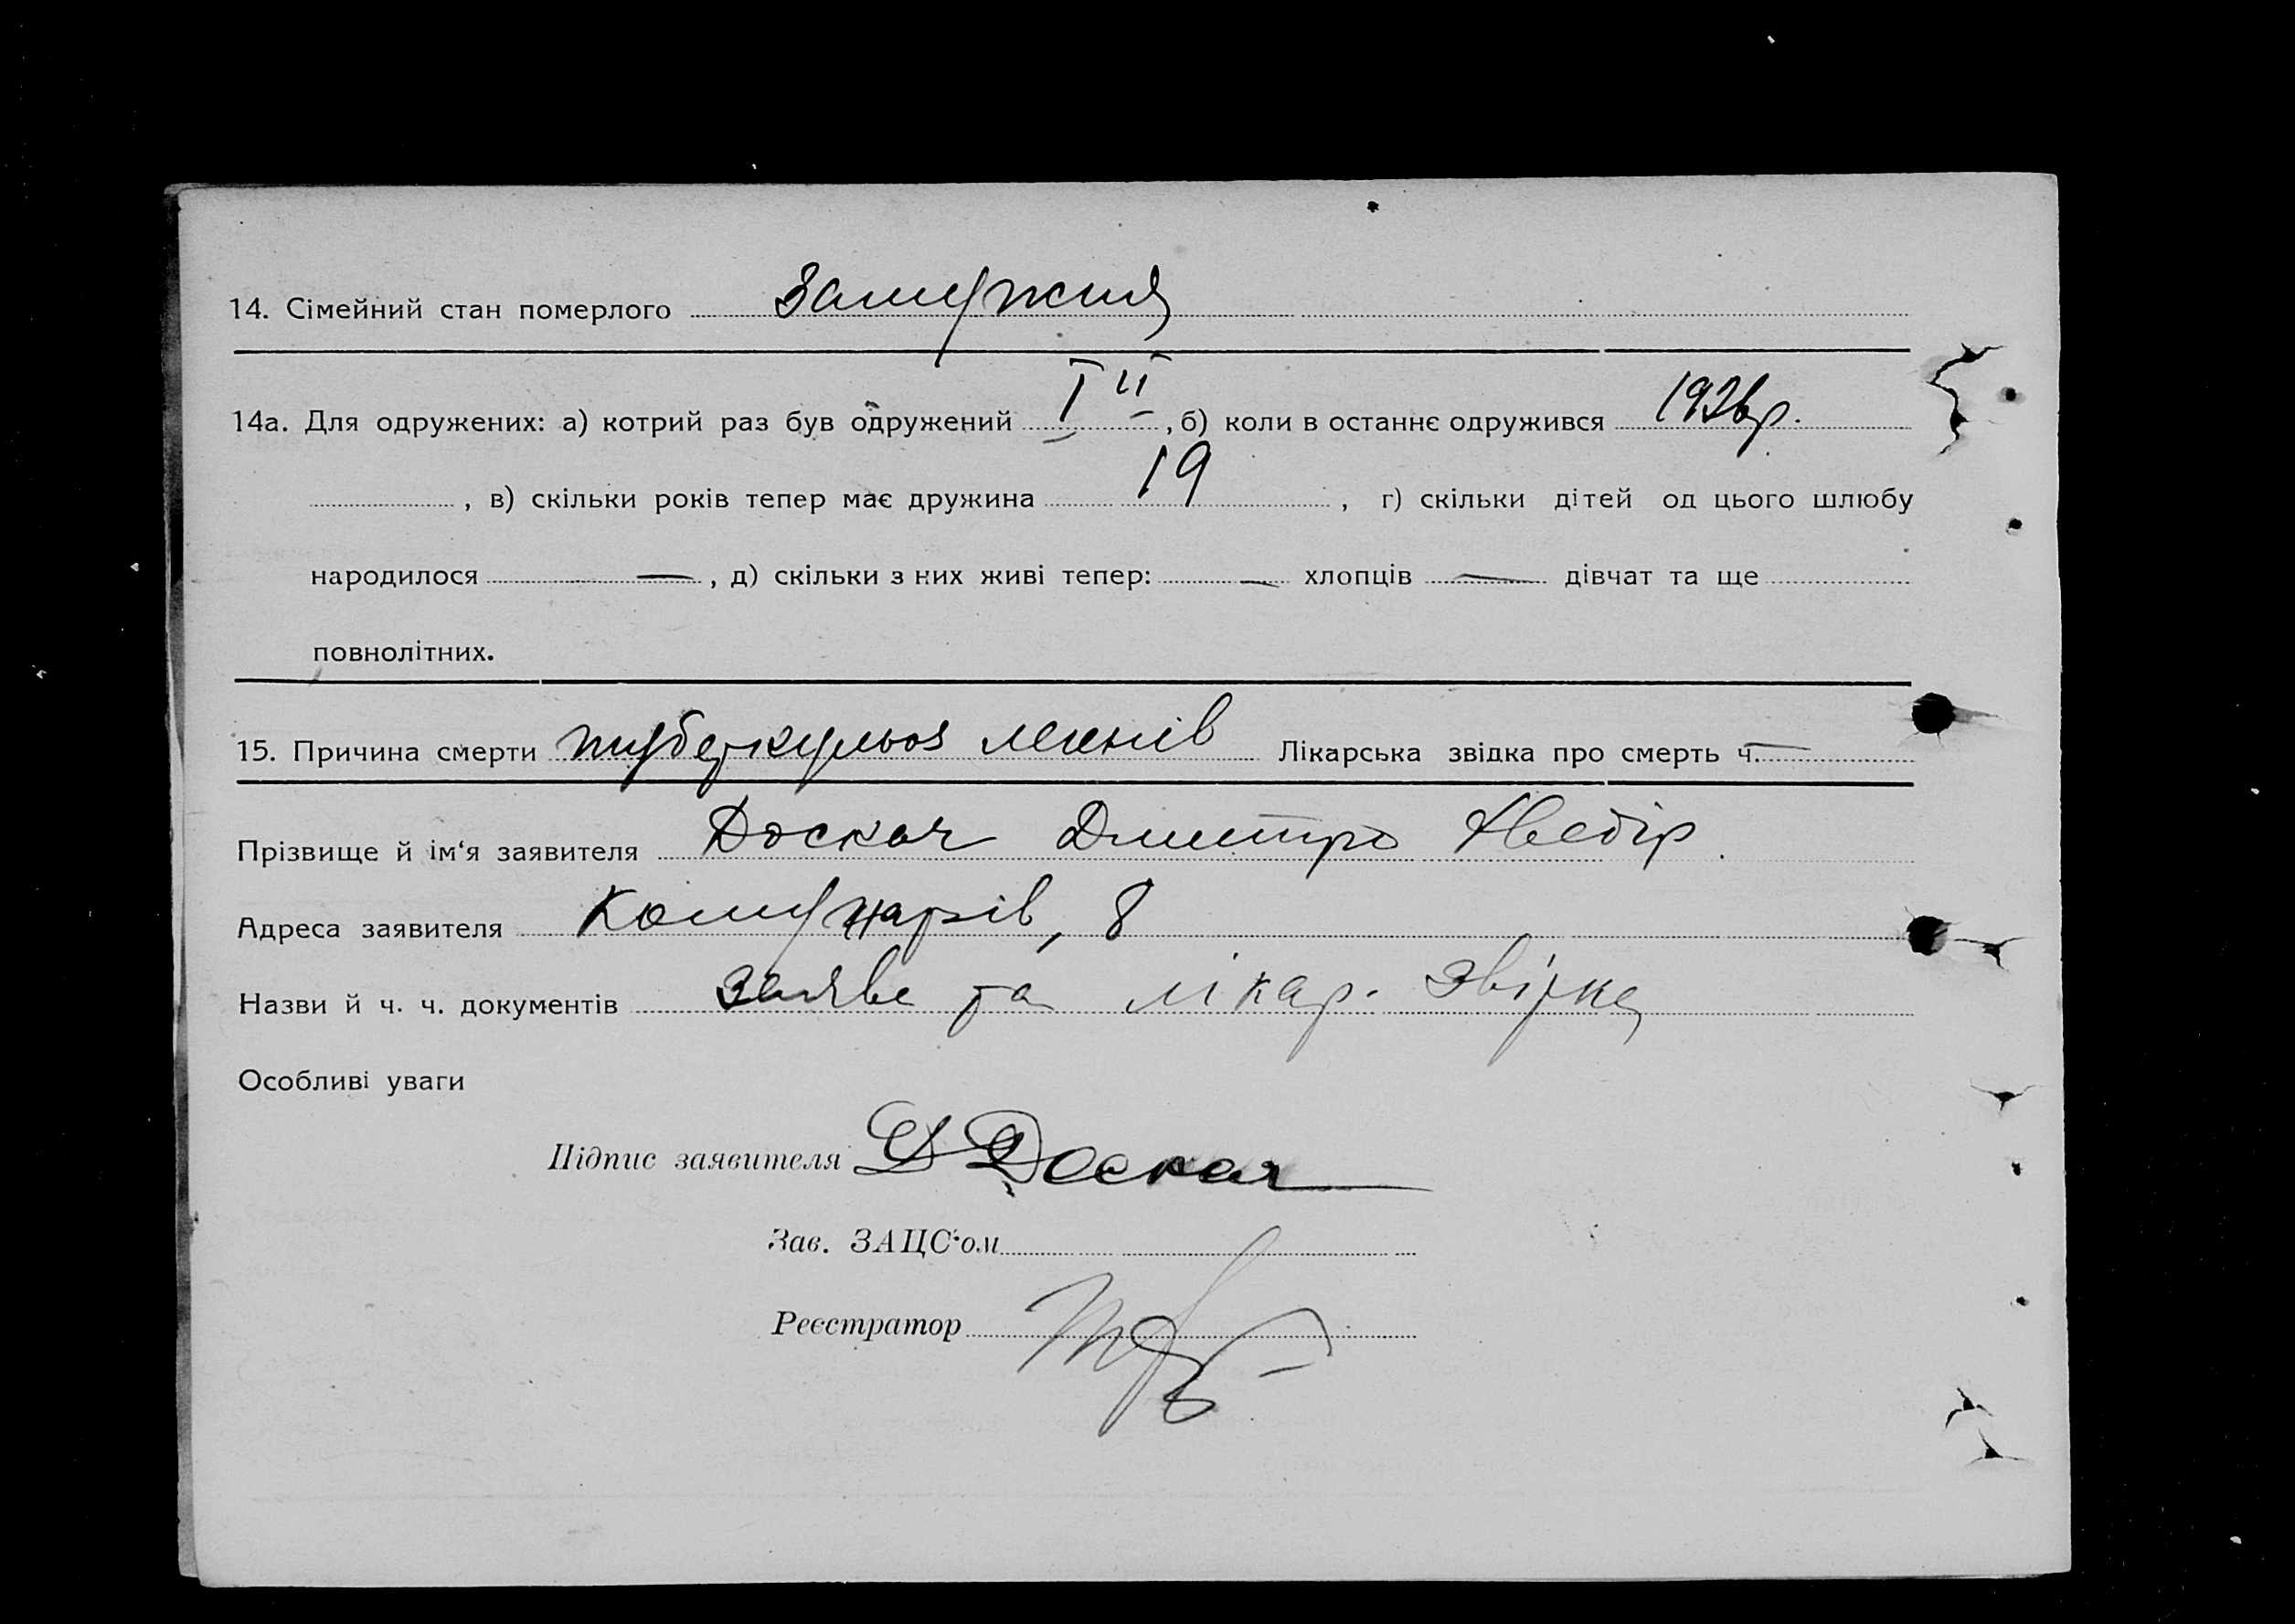 14. Сімейний стан померлого замужня
14а. Для одружених: а) котрий раз був одружений I й, б) коли в останнє одружився
, в) скільки років тепер має дружина 19, г) скільки дітей од цього шлюбу
народилося —, д) скільки з них живі тепер: — хлопців — дівчат та ще
повнолітних.
15. Причина смерти туберкульоз легенів Лікарська звідка про смерть ч. —
Прізвище й ім‘я заявителя Доскач Дмитро
Адреса заявителя Комунарів, 8
Назви й ч. ч. документів заява та лікар.
Особливі уваги
Підпис заявителя Д Доскач
Зав. ЗАЦС‘ом
Реєстратор